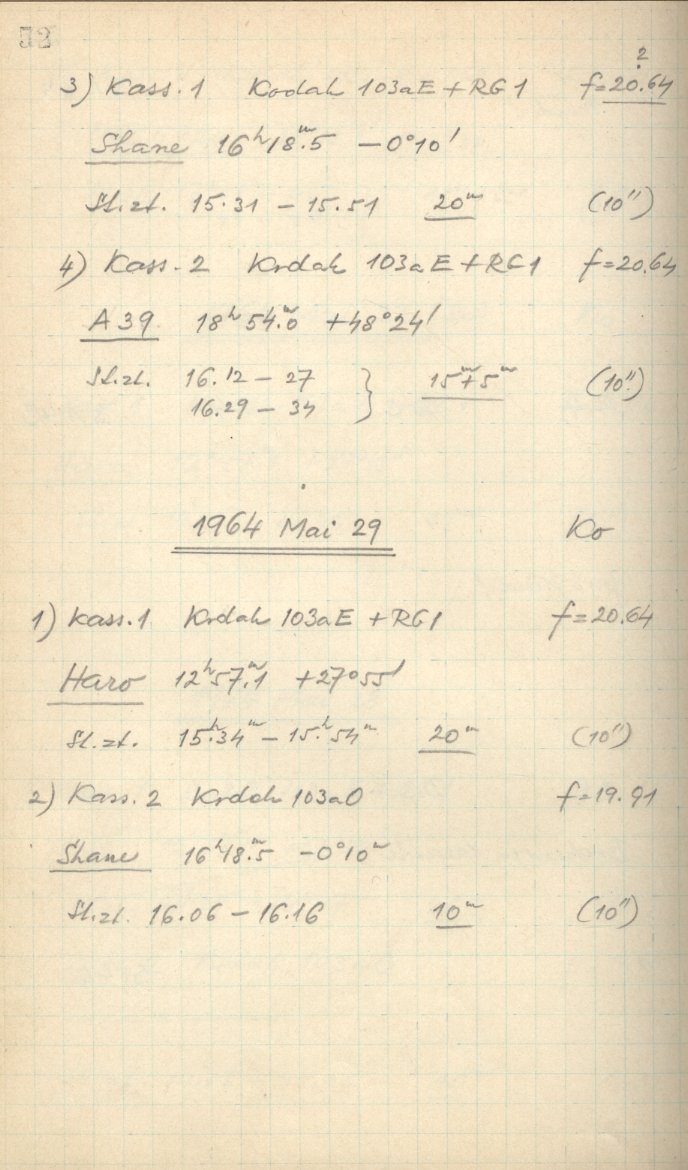 52
2
3) Kass. 1 Kodak 103aE + RG1 f=20.64
Shane 16ʰ18ᵐ.5 −0°10'
St.zt. 15.31 − 15.51 20ᵐ (10")
4) Kass. 2 Kodak 103aE + RG1 f=20.64
A39 18ʰ54ᵐ.0 +48°24'
St.zt. 16.12 − 27 } 15ᵐ+5ᵐ (10")
16.29 − 34
1964 Mai 29 Ko
1) Kass. 1 Kodak 103aE + RG1 f=20.64
Haro 12ʰ57ᵐ.1 +27°55'
St.zt. 15ʰ.34ᵐ − 15ʰ.54ᵐ 20ᵐ (10")
2) Kass. 2 Kodak 103aO f=19.91
Shane 16ʰ18ᵐ.5 −0°10ᵐ
St.zt. 16.06 − 16.16 10ᵐ (10")